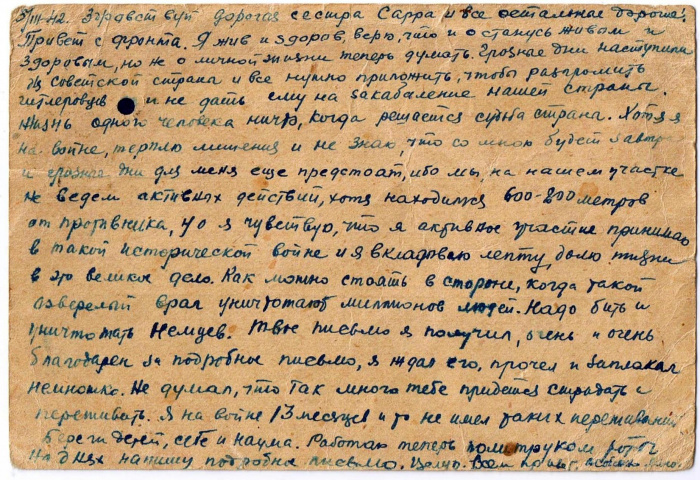 5/III-42. Здравствуй дорогая сестра Сарра и все остальные дорогие!
Привет с фронта. Я жив и здоров, верю, что и останусь живым и
здоровым, но не о личной жизни теперь думать. Грозные дни наступили
для советской страна и все нужно приложить, чтобы разгромить
гитлеровцев и не дать ему на закабаление нашей страны.
Жизнь одного человека ничто, когда решается судьба страна. Хотя я
на войне, терплю лишения и не знаю, что со мною будет завтра
и грозные дни для меня еще предстоят, ибо мы, на нашем участке
не ведем активных действий, хотя находимся 600-800 метров
от противника, но я чувствую, что я активное участие принимаю
в такой исторической войне и я вкладоваю лепту, долю жизни
в это великое дело. Как можно стоать в стороне, когда такой
озверелый враг уничтожает миллионов людей. Надо бить и
уничтожать Немцев. Твое письмо я получил, очень и очень
благодарен за подробное письмо, я ждал его, прочел и заплакал
немножко. Не думал, что так много тебе придется страдать и
переживать. Я на войне 13 месяцев и то не имел таких переживаний
Береги детей, себе и Наума. Работаю теперь политруком роты
На днях напишу подробное письмо. Целую. Всем привет,